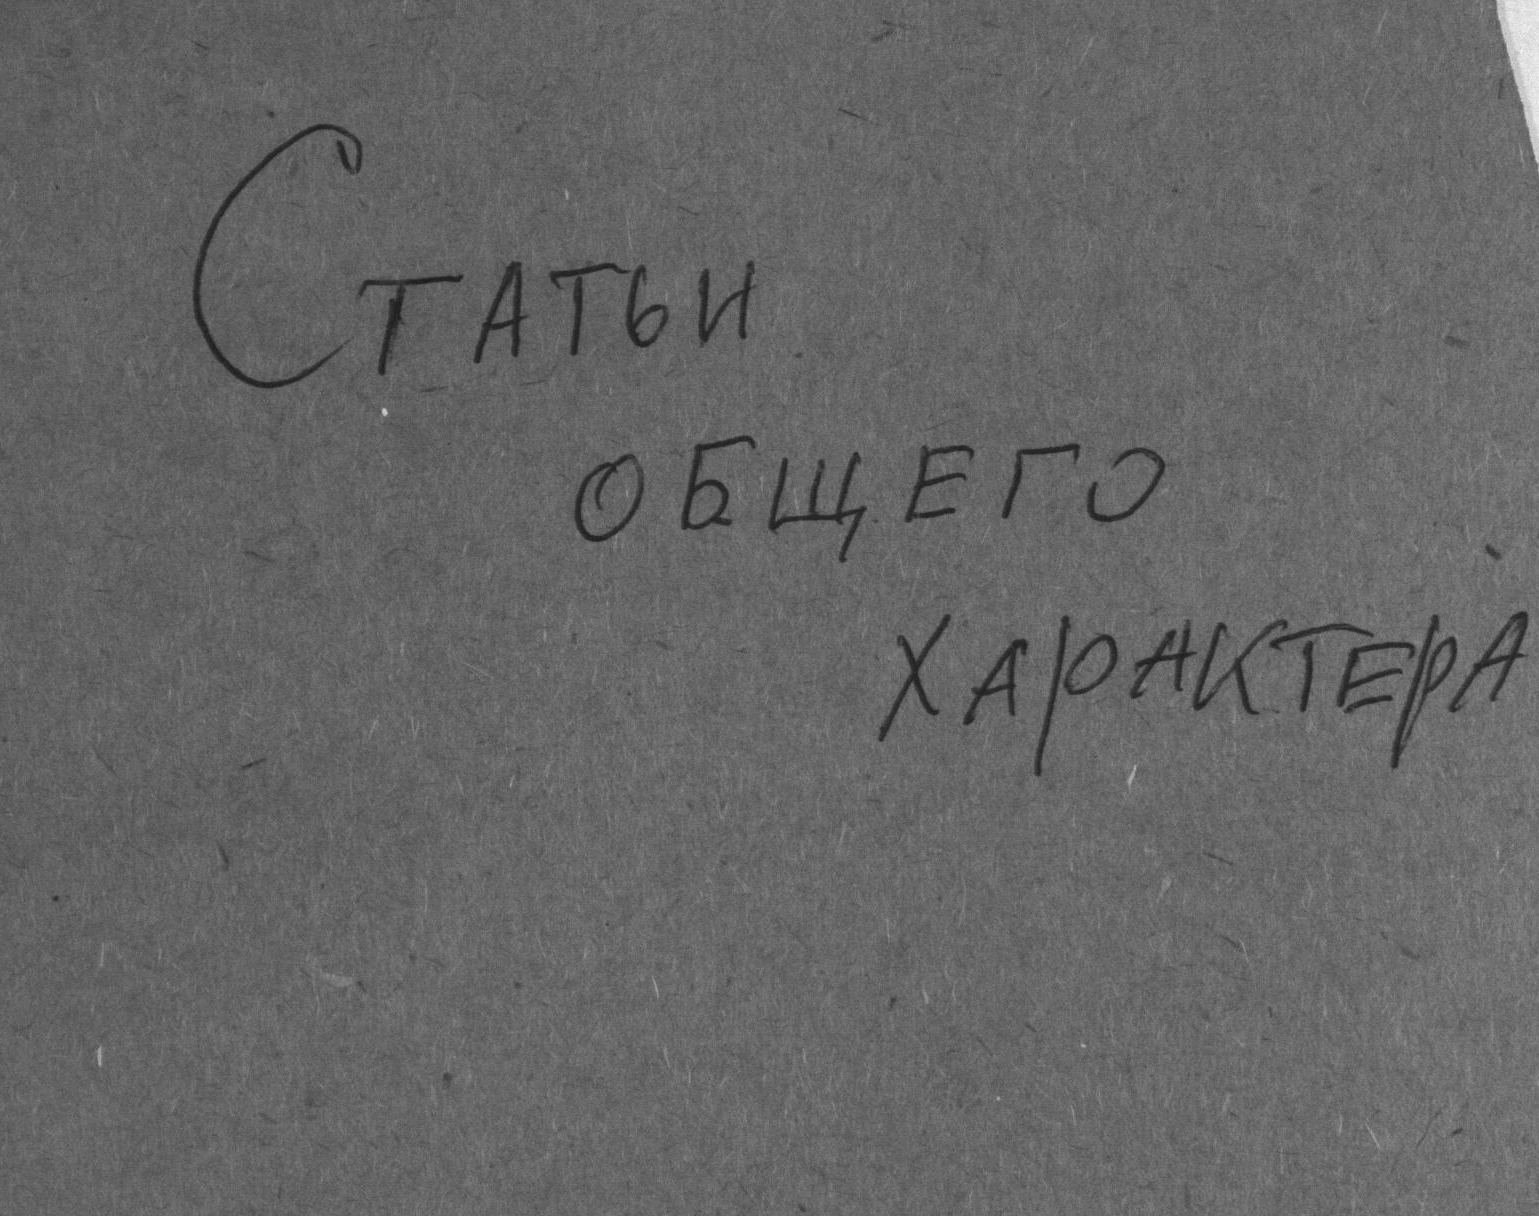 Статьи
общего
характера